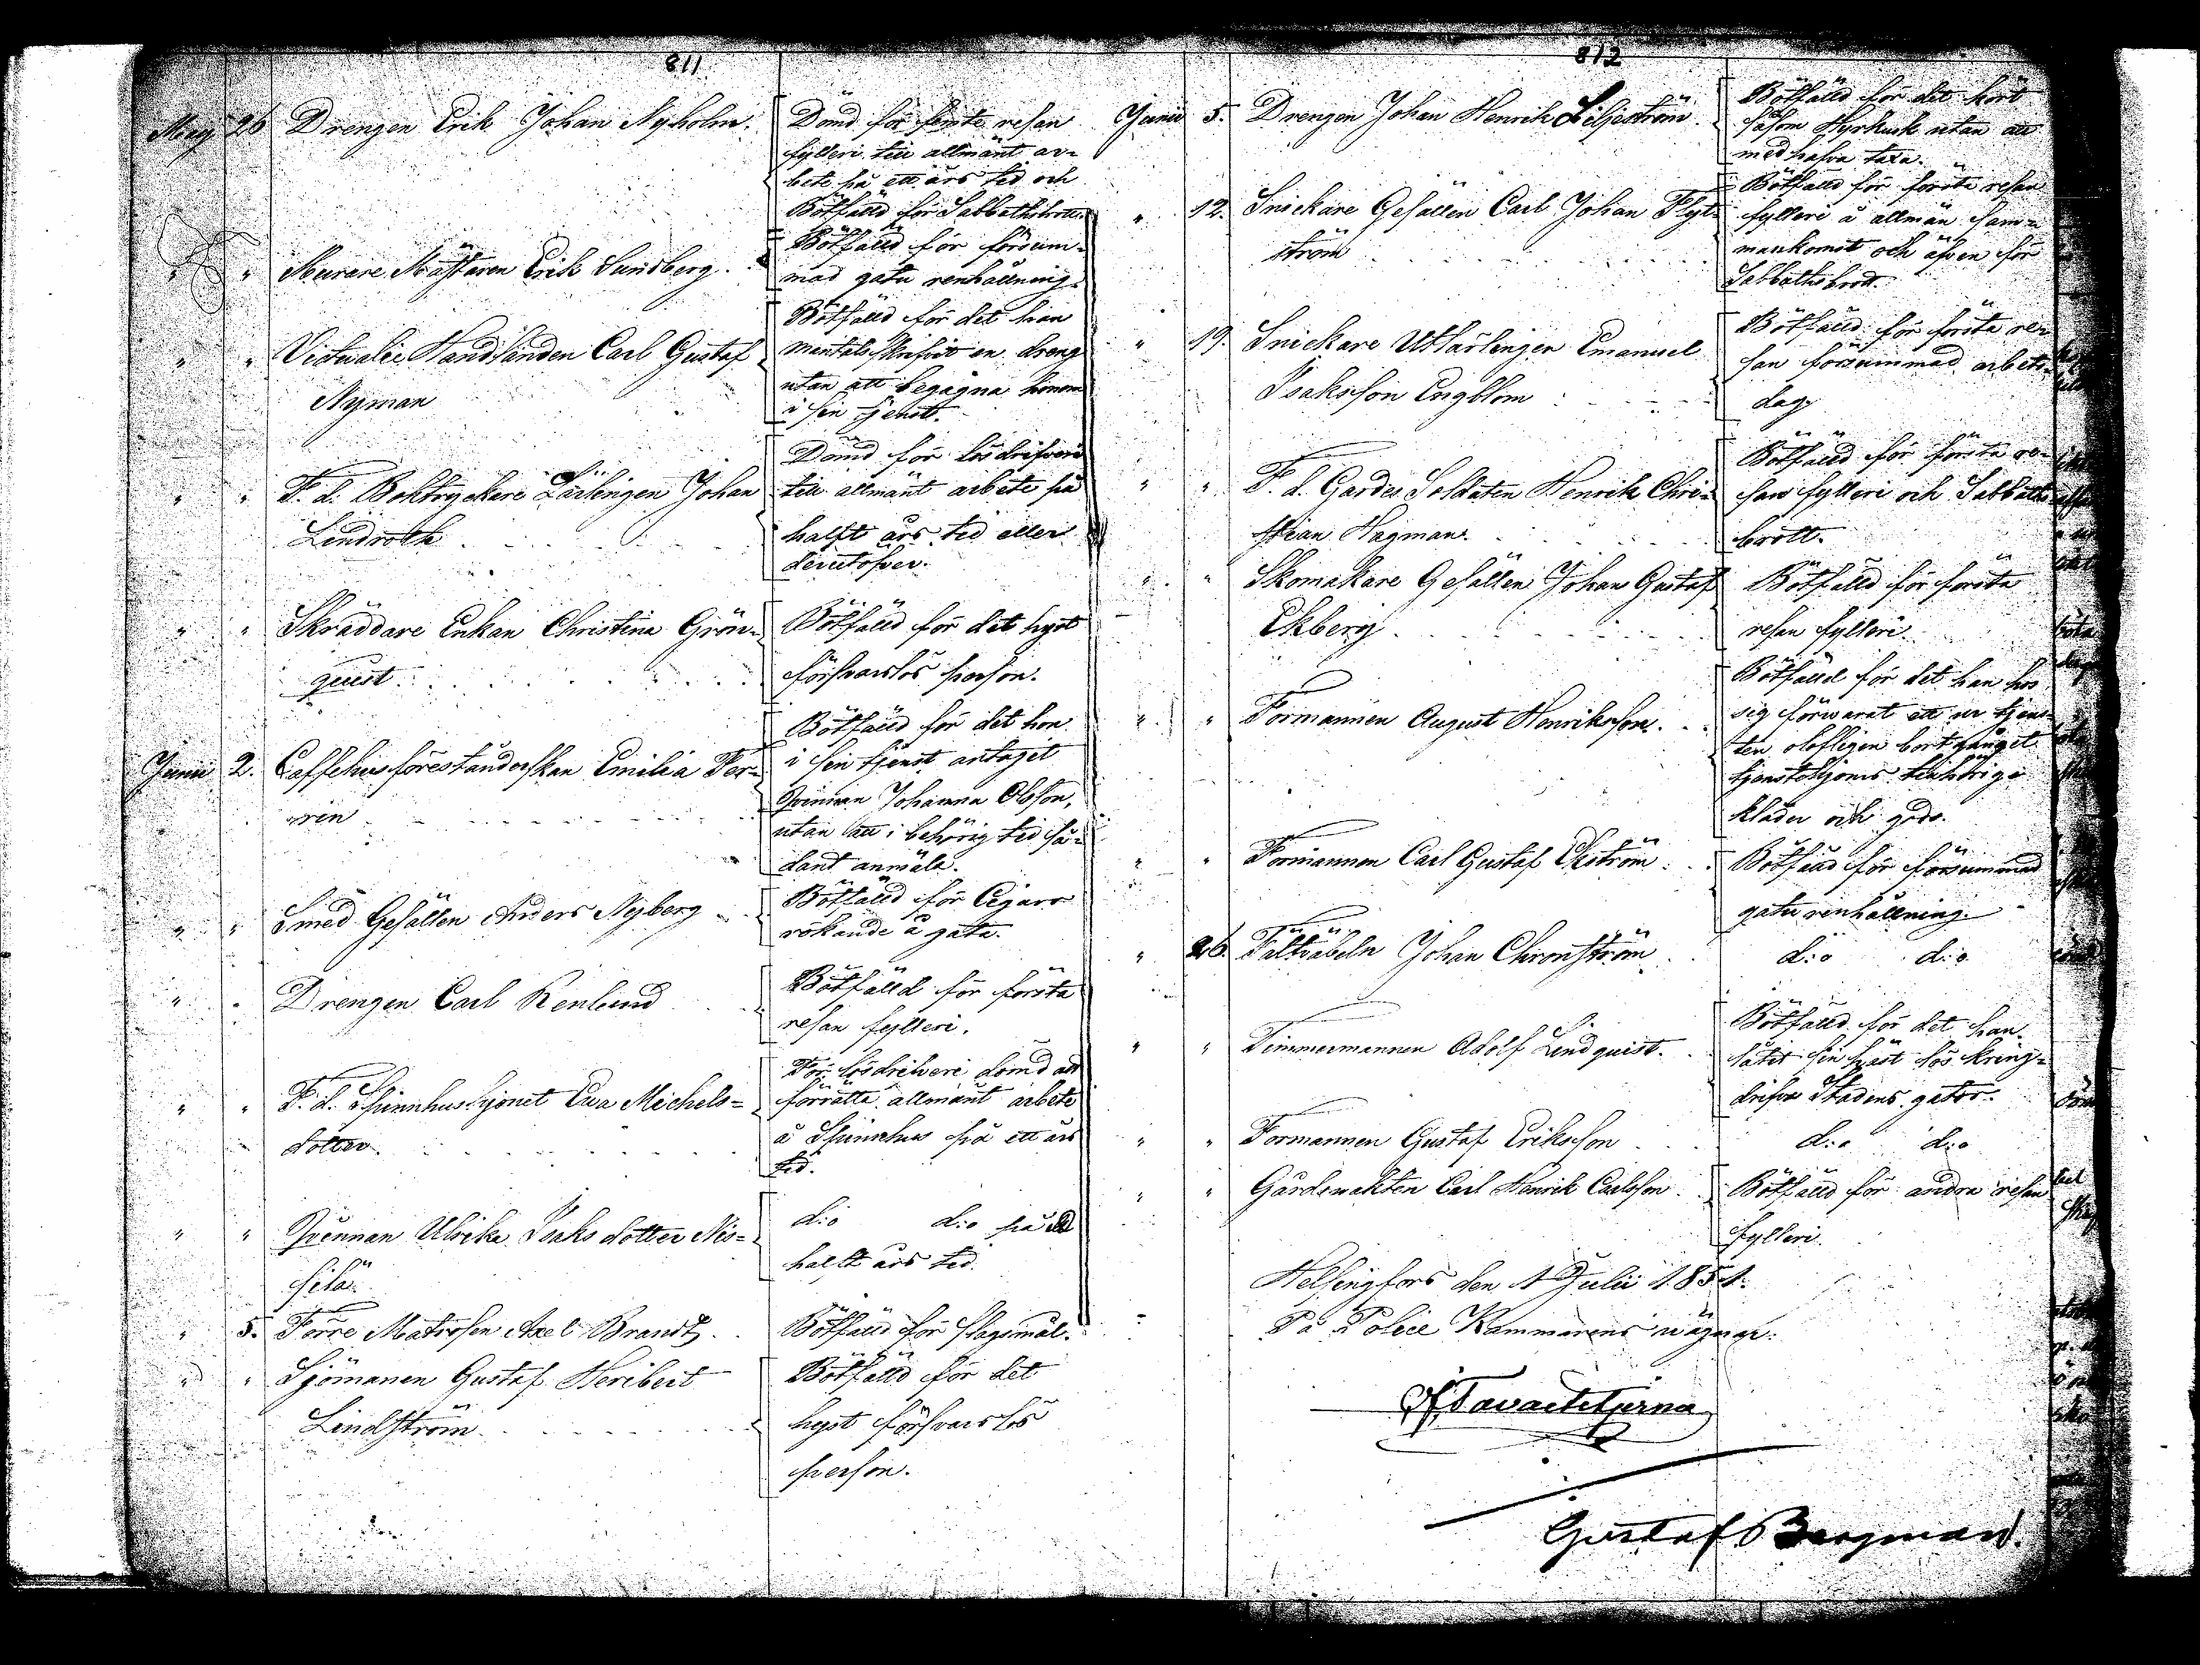 811
May 26 Drengen Erik Johan Nyholm. Dömd för femte resan
fylleri till allmänt ar-
bete på ett års tid och
Bötfälld för Sabbathsbrott.
" " Murare Mästaren Erik Sundberg. Bötfälld för försum-
mad gatu renhållning.
" " Victualie Handlanden Carl Gustaf
Nyman
Bötfälld för det han
mantalsskrifvit en dreng
utan att begagna honom
i sin tjenst.
" " F. d. Boktryckare Lärlingen Johan
Lindroth
Dömd för lösdrifveri
till allmänt arbete på
halft års tid eller
derutöfver.
" " Skräddare Enkan Christina Grön-
quist
Bötfälld för det hyst
försvarslös person.
Junii 2. Caffehusföreståndarskan Emilia
Bötfälld för det hon
i sin tjenst antaget
Qvinnan Johanna Olsson,
utan att i behörig tid så-
dant anmäla.
" " Smed Gesällen Anders Nyberg
Bötfälld för Cigarr
rökande å gata.
" " Drengen Carl Renlund
Bötfälld för första
resan fylleri.
" " F. d. Spinnhushjonet Eva Michels-
dotter.
För lösdriveri dömd att
förrätta allmänt arbete
å Spinnhus på ett års
tid.
" " Qvinnan Ulrika Isaksdotter Nis-
silä
d:o d:o på ett
halft års tid.
" 5. Förre Matrosen Axel Brandt. Bötfälld för slagsmål.
" " Sjömannen Gustaf Heribert
Lindström
Bötfälld för det
hyst försvarslös
person.
812
Junii 5. Drengen Johan Henrik Liljeström.
Bötfälld för det kört
såsom Hyrkusk utan att
medhafva taxa.
" 12. Snickare Gesällen Carl Johan Flyt-
ström
Bötfälld för första resan
fylleri å allmän sam-
mankomst och äfven för
Sabbathsbrott.
" 19. Snickare Utlärlingen Emanuel
Isaksson Engblom
Bötfälld för första re-
san försummad arbets-
dag.
" " F. d. Gardes Soldaten Henrik Chri-
stian Hagman.
Bötfälld för första re-
san fylleri och Sabbaths
brott.
" " Skomakare Gesällen Johan Gustaf
Ekberg.
Bötfälld för första
resan fylleri.
" " Formannen August Henriksson.
Bötfälld för det han hos
sig förvarat ett ur tjens-
ten olofligen bortgånget
tjenstehjons tillhörige
kläder och gods.
" " Formannen Carl Gustaf Ekström
Bötfälld för försummad
gatu renhållning.
" 26. Fältväbeln Johan Chronström d:o d:o
" " Timmermannen Adolf Lindquist.
Bötfälld för det han
låtit sin häst lös kring-
drifva Stadens gator.
" " Formannen Gustaf Eriksson d:o d:o
" " Gårdsvakten Carl Henrik Carlsson.
Bötfälld för andra resan
fylleri.
Helsingfors den 1 Julii 1854.
På Police Kammarens vägnar:
Gustaf Bergman.